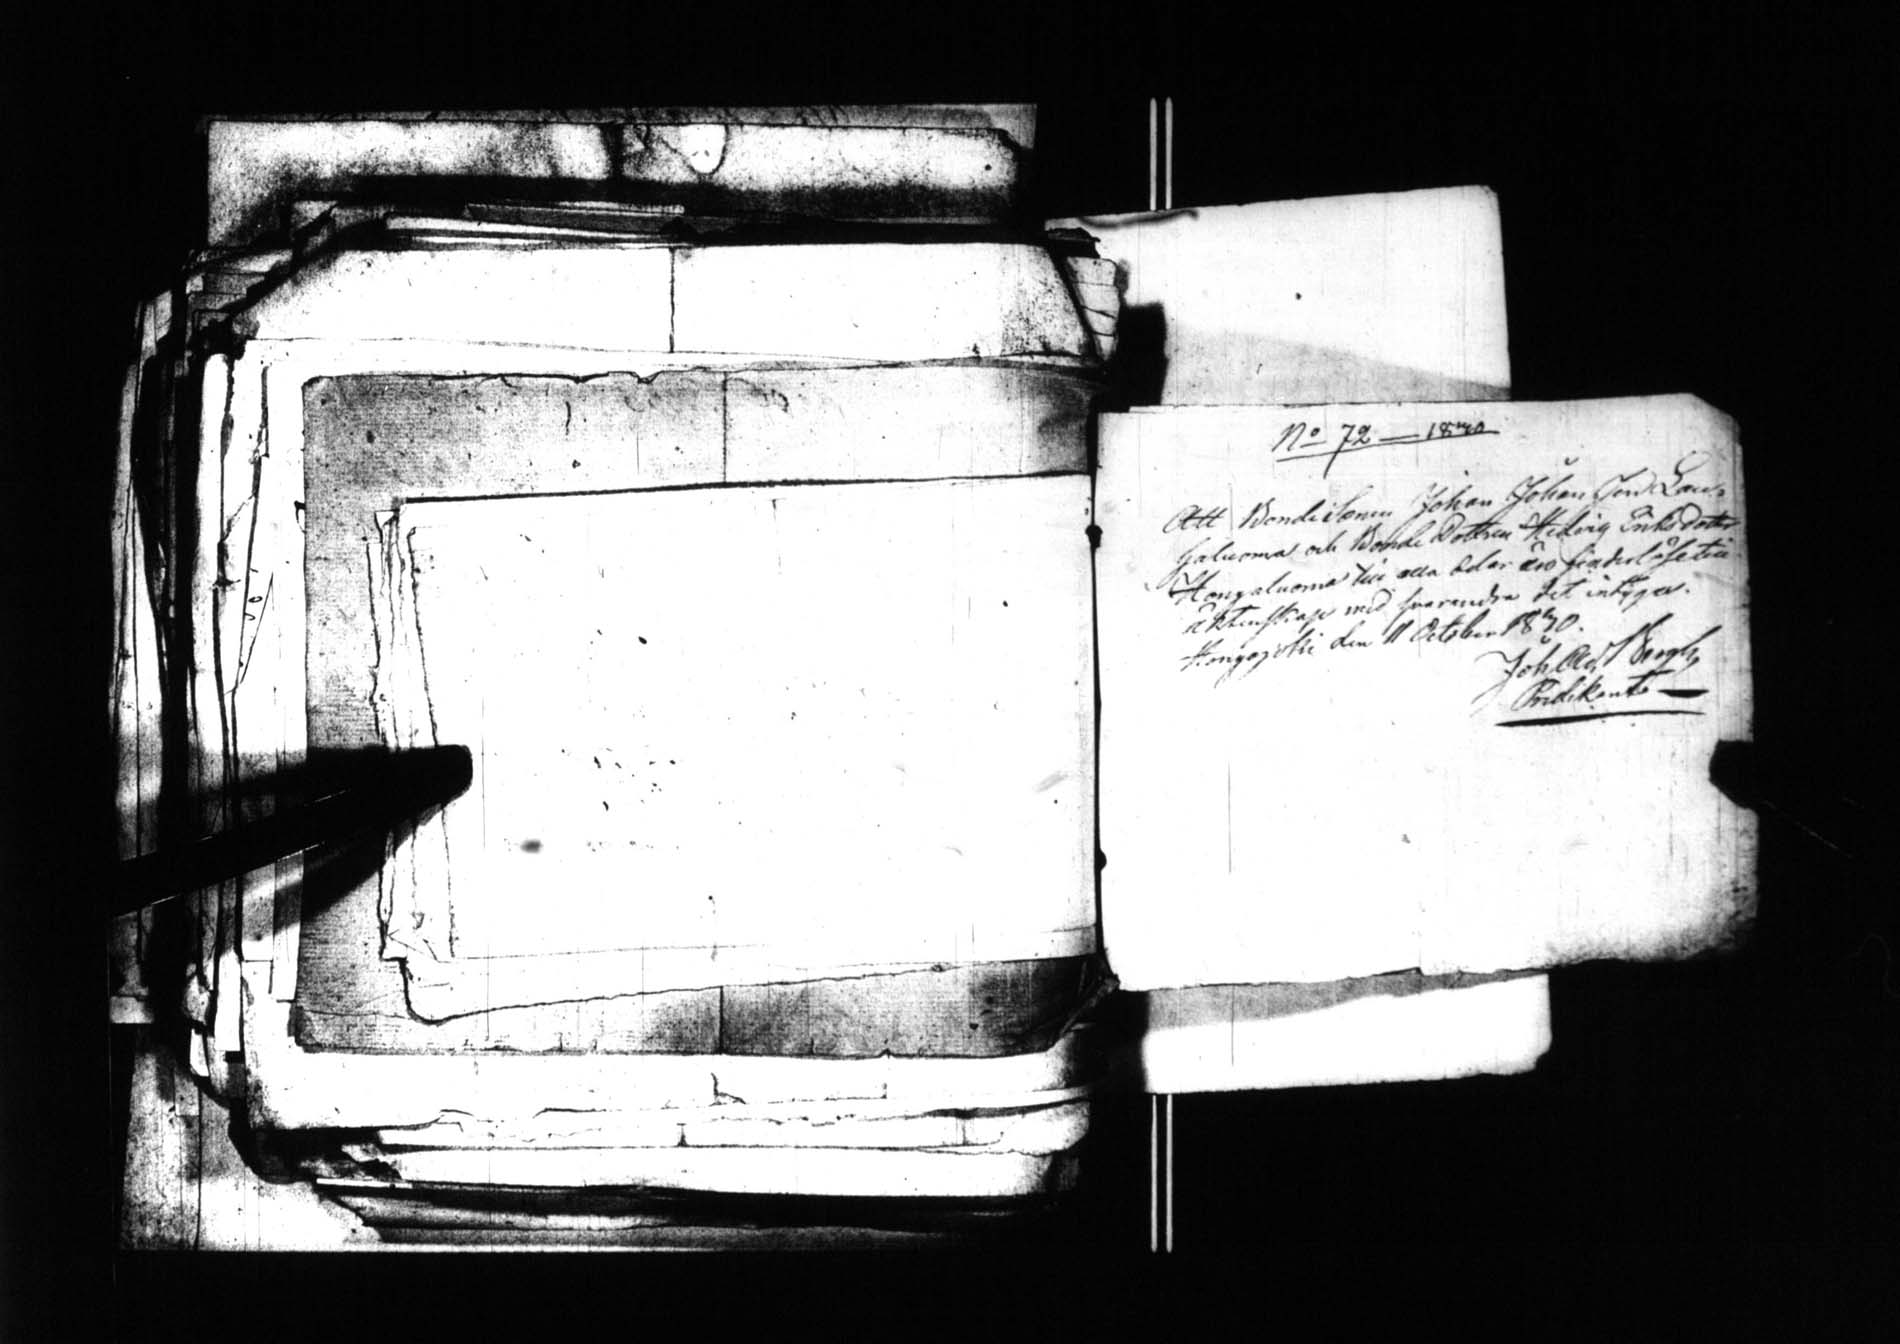 No 72 — 1870
Att Bondesonen Johan Johan Son Lau-
haluoma och Bonde Dottren Hedvig Eriks dotter
Hongaluoma till alla delar äro hinderlöse till
äktenskap med hvarandra det intygar.
Hongojoki den 11 October 1870.
Joh Ad Bergh
Predikant